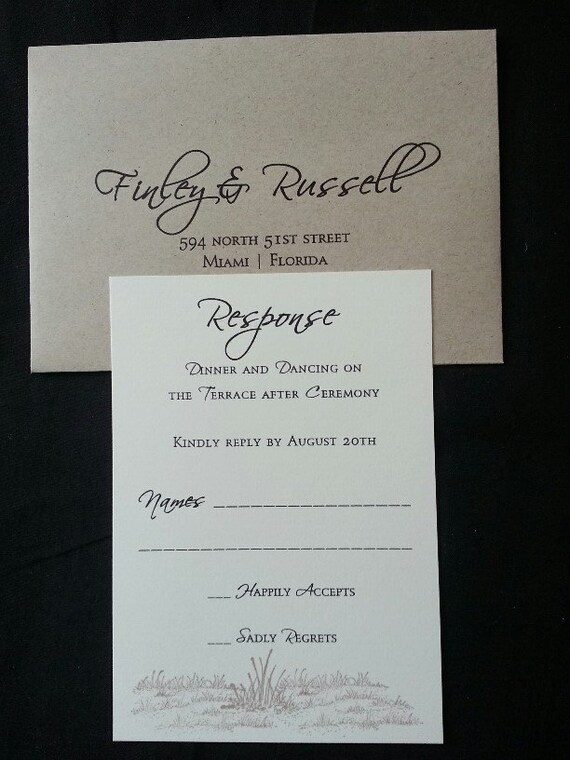 Finley & Russell
594 North 51st Street
Miami | Florida
Response
Dinner and Dancing on
the Terrace after Ceremony
Kindly reply by August 20th
Names ________________
______________________
___ Happily Accepts
___ Sadly Regrets